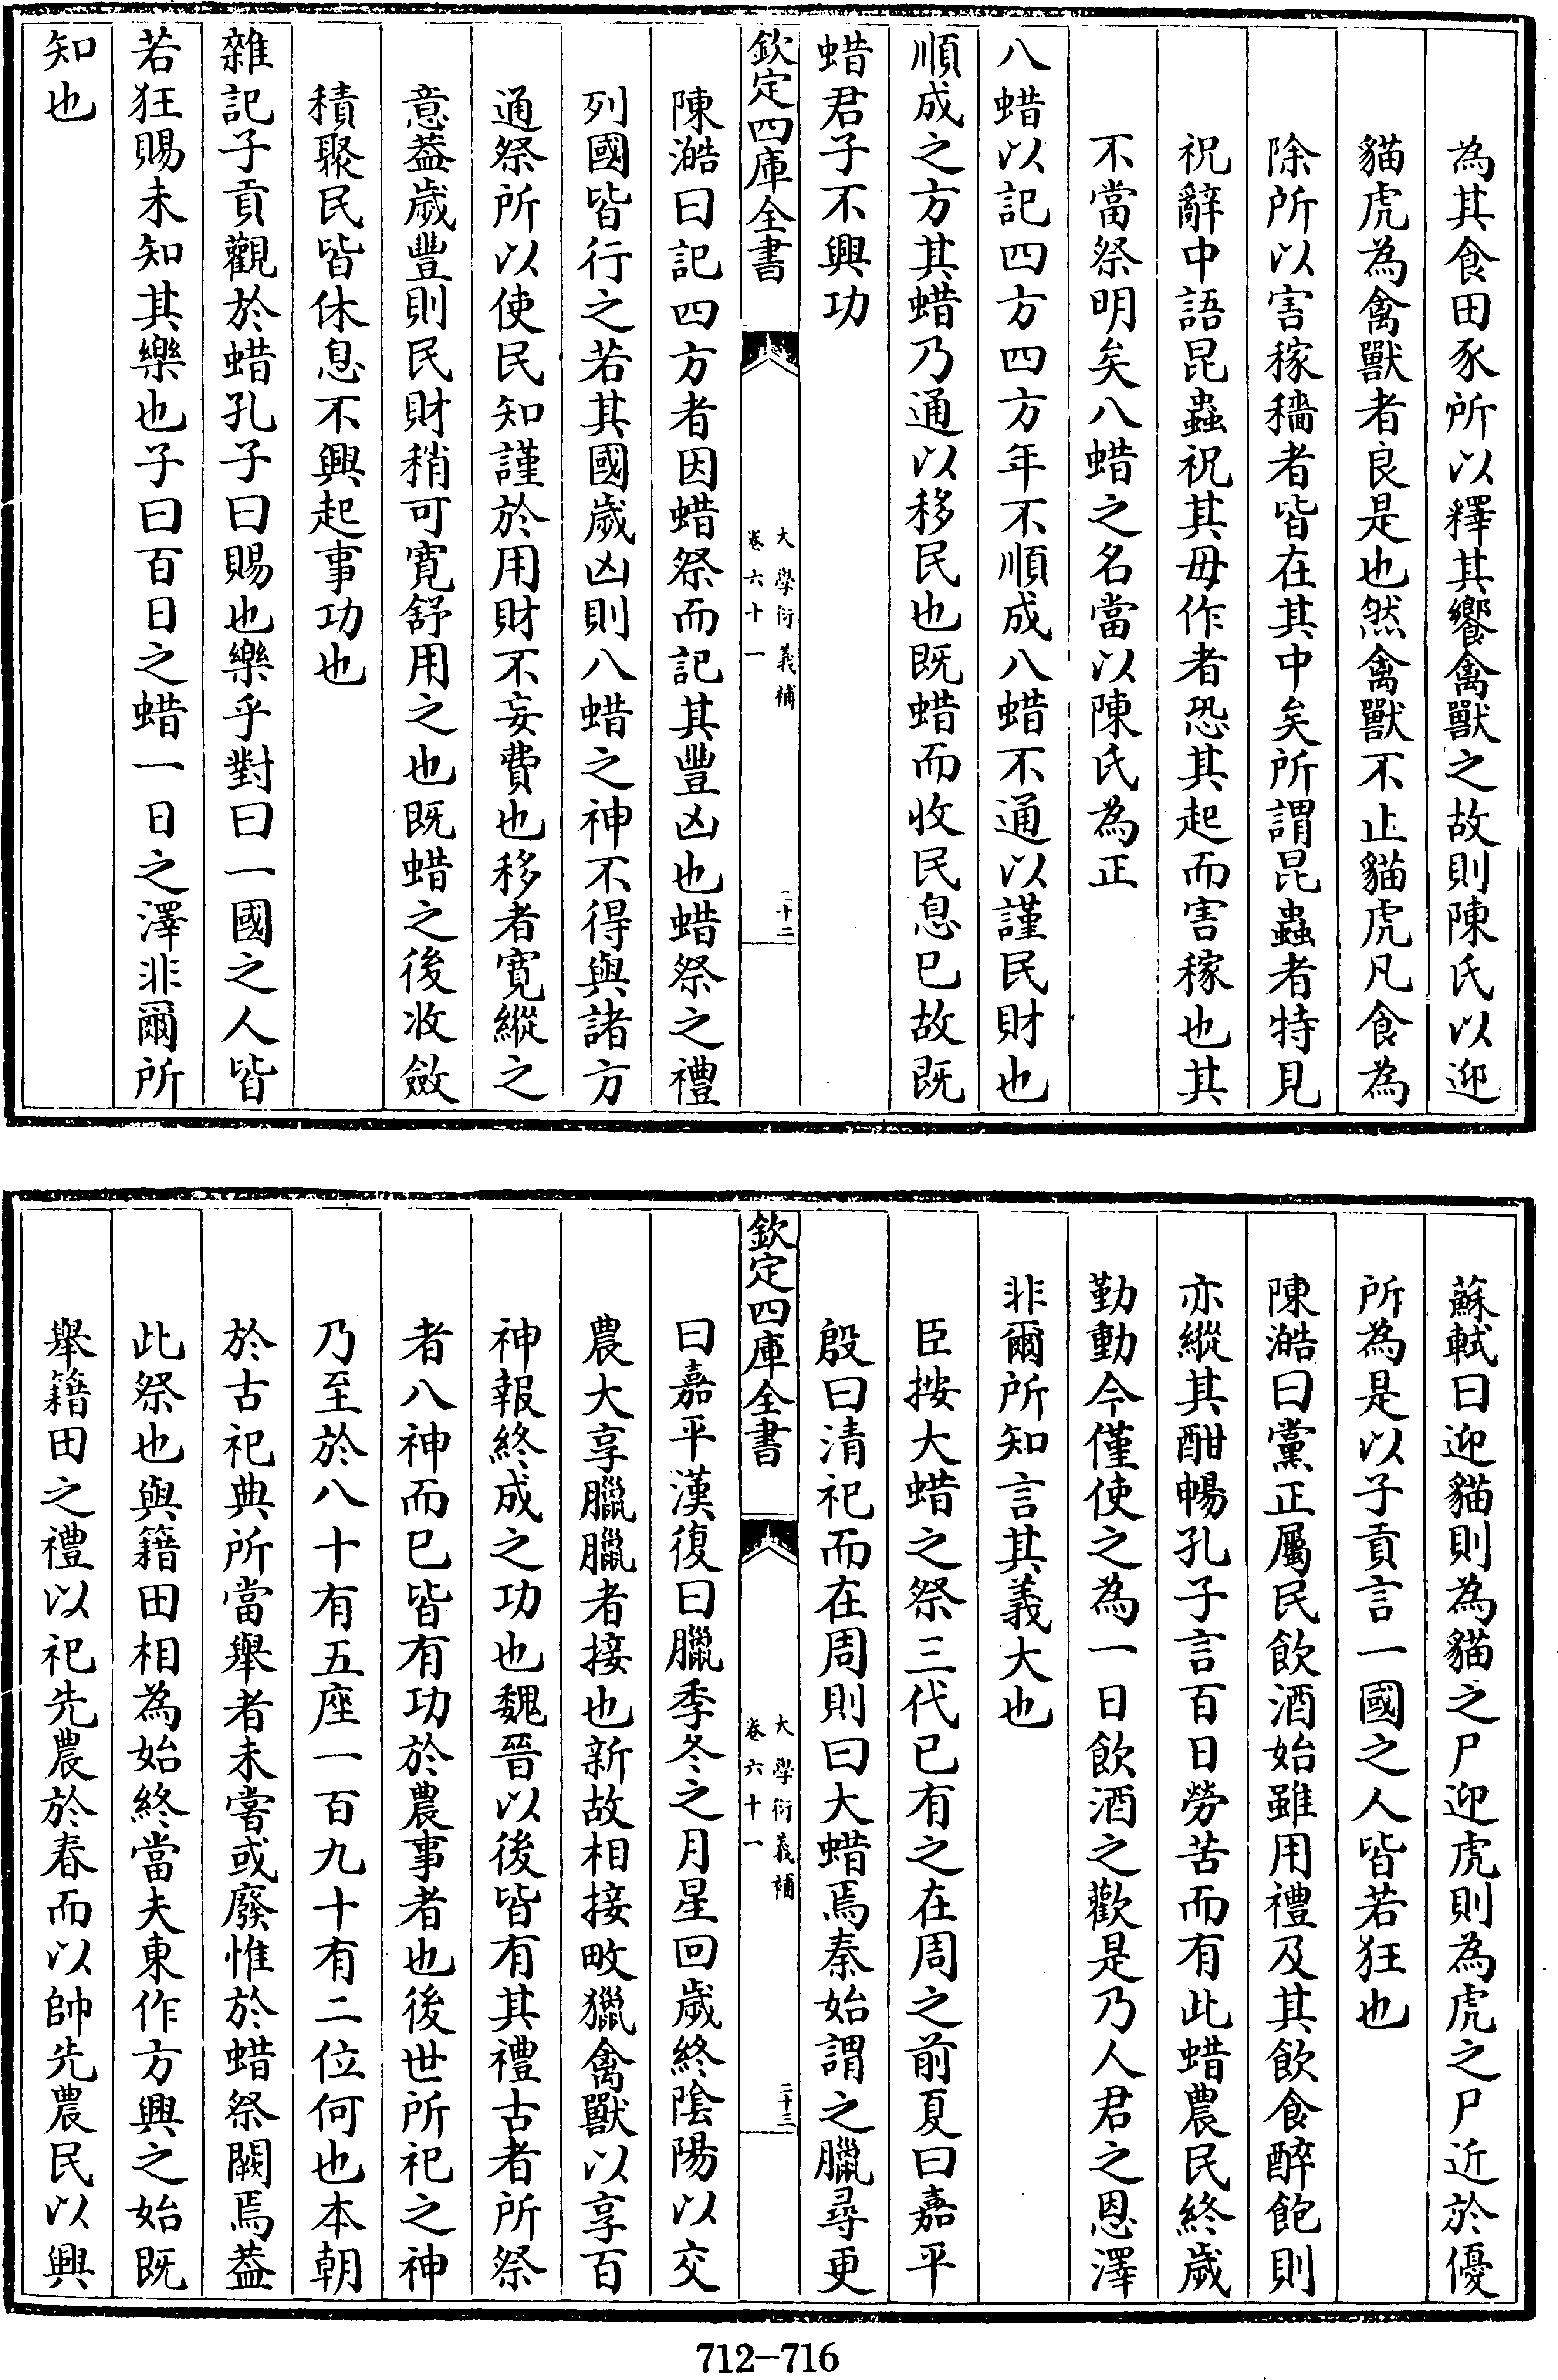 為其食田豕所以釋其饗禽獸之故則陳氏以迎
貓虎為禽獸者良是也然禽獸不止貓虎凡食為
除所以害稼穡者皆在其中矣所謂昆蟲者特見
祝辭中語昆蟲祝其毋作者恐其起而害稼也其
不當祭明矣八蜡之名當以陳氏為正
八蜡以記四方四方年不順成八蜡不通以謹民財也
順成之方其蜡乃通以移民也既蜡而收民息已故既
蜡君子不興功
欽定四庫全書
大學衍義補
卷六十一
二十二
陳澔曰記四方者因蜡祭而記其豐凶也蜡祭之禮
列國皆行之若其國歲凶則八蜡之神不得與諸方
通祭所以使民知謹於用財不妄費也移者寛縱之
意葢歲豐則民財稍可寛舒用之也既蜡之後收斂
積聚民皆休息不興起事功也
雜記子貢觀於蜡孔子曰賜也樂乎對曰一國之人皆
若狂賜未知其樂也子曰百日之蜡一日之澤非爾所
知也
蘇軾曰迎貓則為貓之尸迎虎則為虎之尸近於優
所為是以子貢言一國之人皆若狂也
陳澔曰黨正屬民飲酒始雖用禮及其飲食醉飽則
亦縱其酣暢孔子言百日勞苦而有此蜡農民終歲
勤動今僅使之為一日飲酒之歡是乃人君之恩澤
非爾所知言其義大也
臣按大蜡之祭三代已有之在周之前夏曰嘉平
殷曰清祀而在周則曰大蜡焉秦始謂之臘尋更
欽定四庫全書
大學衍義補
卷六十一
二十三
曰嘉平漢復曰臘季冬之月星回歲終陰陽以交
農大享臘臘者接也新故相接畋獵禽獸以享百
神報終成之功也魏晉以後皆有其禮古者所祭
者八神而已皆有功於農事者也後世所祀之神
乃至於八十有五座一百九十有二位何也本朝
於古祀典所當舉者未嘗或廢惟於蜡祭闕焉葢
此祭也與籍田相為始終當夫東作方興之始既
舉籍田之禮以祀先農於春而以帥先農民以興
712-716